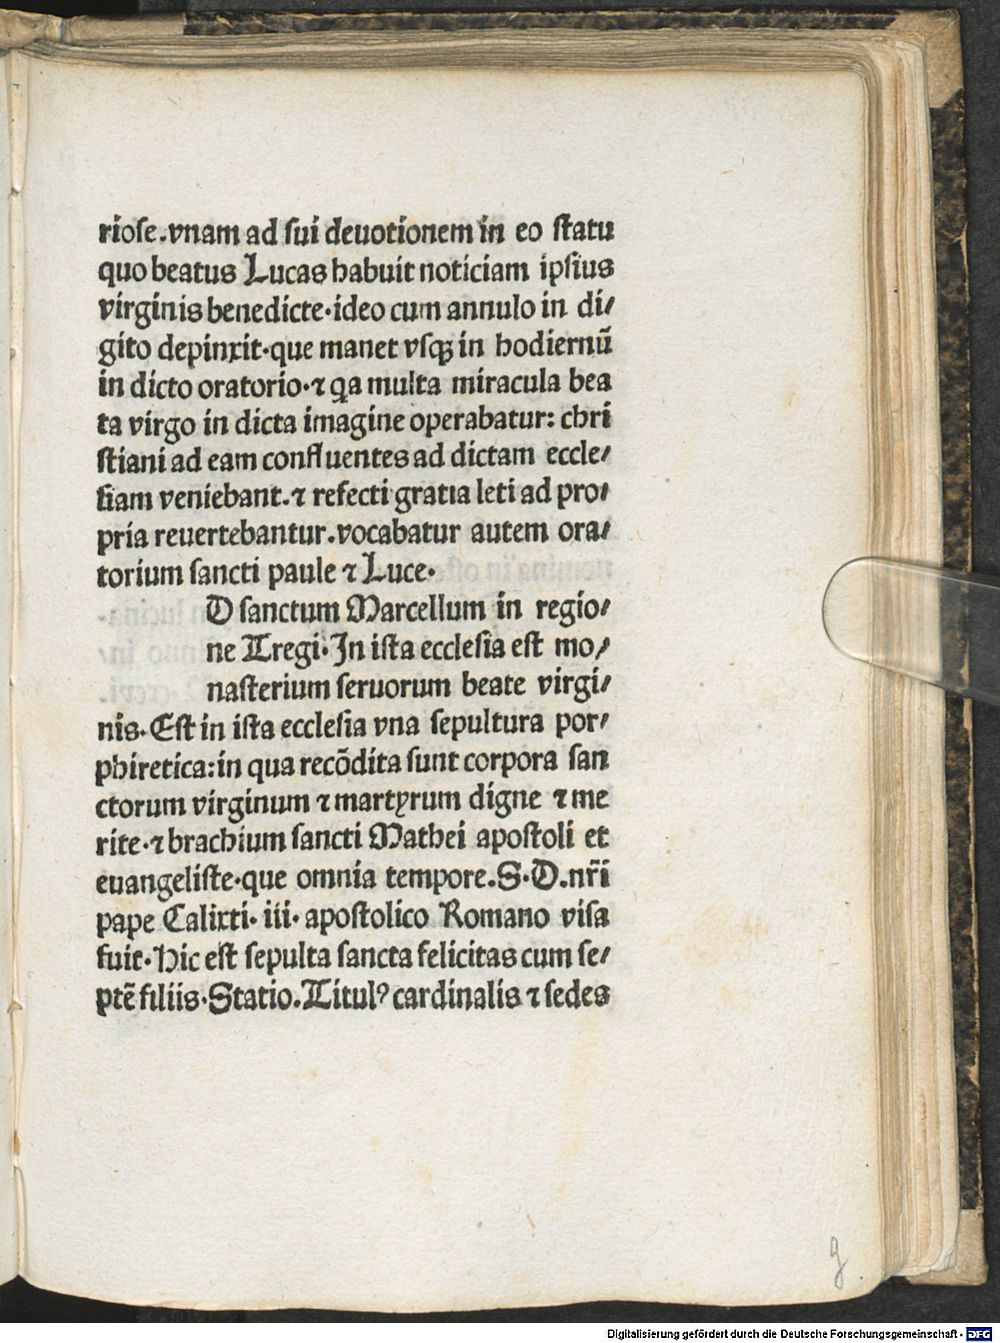 riose.vnam ad sui deuotionem in eo statu
quo beatus Lucas habuit noticiam ipsius
virginis benedicte·ideo cum annulo in di/
gito depinxit·que manet vsqꝫ in hodiernū
in dicto oratorio·⁊ qꝛa multa miracula bea
ta virgo in dicta imagine operabatur: chri
stiani ad eam confluentes ad dictam eccle/
siam veniebant.⁊ refecti gratia leti ad pro/
pria reuertebantur.vocabatur autem ora/
torium sancti paule ⁊ Luce·
D sanctum Marcellum in regio/
ne Tregi·In ista ecclesia est mo/
nasterium seruorum beate virgi/
nis·Est in ista ecclesia vna sepultura por/
phiretica:in qua recōdita sunt corpora san
ctorum virginum ⁊ martyrum digne ⁊ me
rite·⁊ brachium sancti Mathei apostoli et
euangeliste·que omnia tempore.S·D.nr̄i
pape Calixti·iii·apostolico Romano visa
fuit·Hic est sepulta sancta felicitas cum se/
ptē filiis·Statio.Titulꝰ cardinalis ⁊ sedes
g
Digitalisierung gefördert durch die Deutsche Forschungsgemeinschaft - DFG